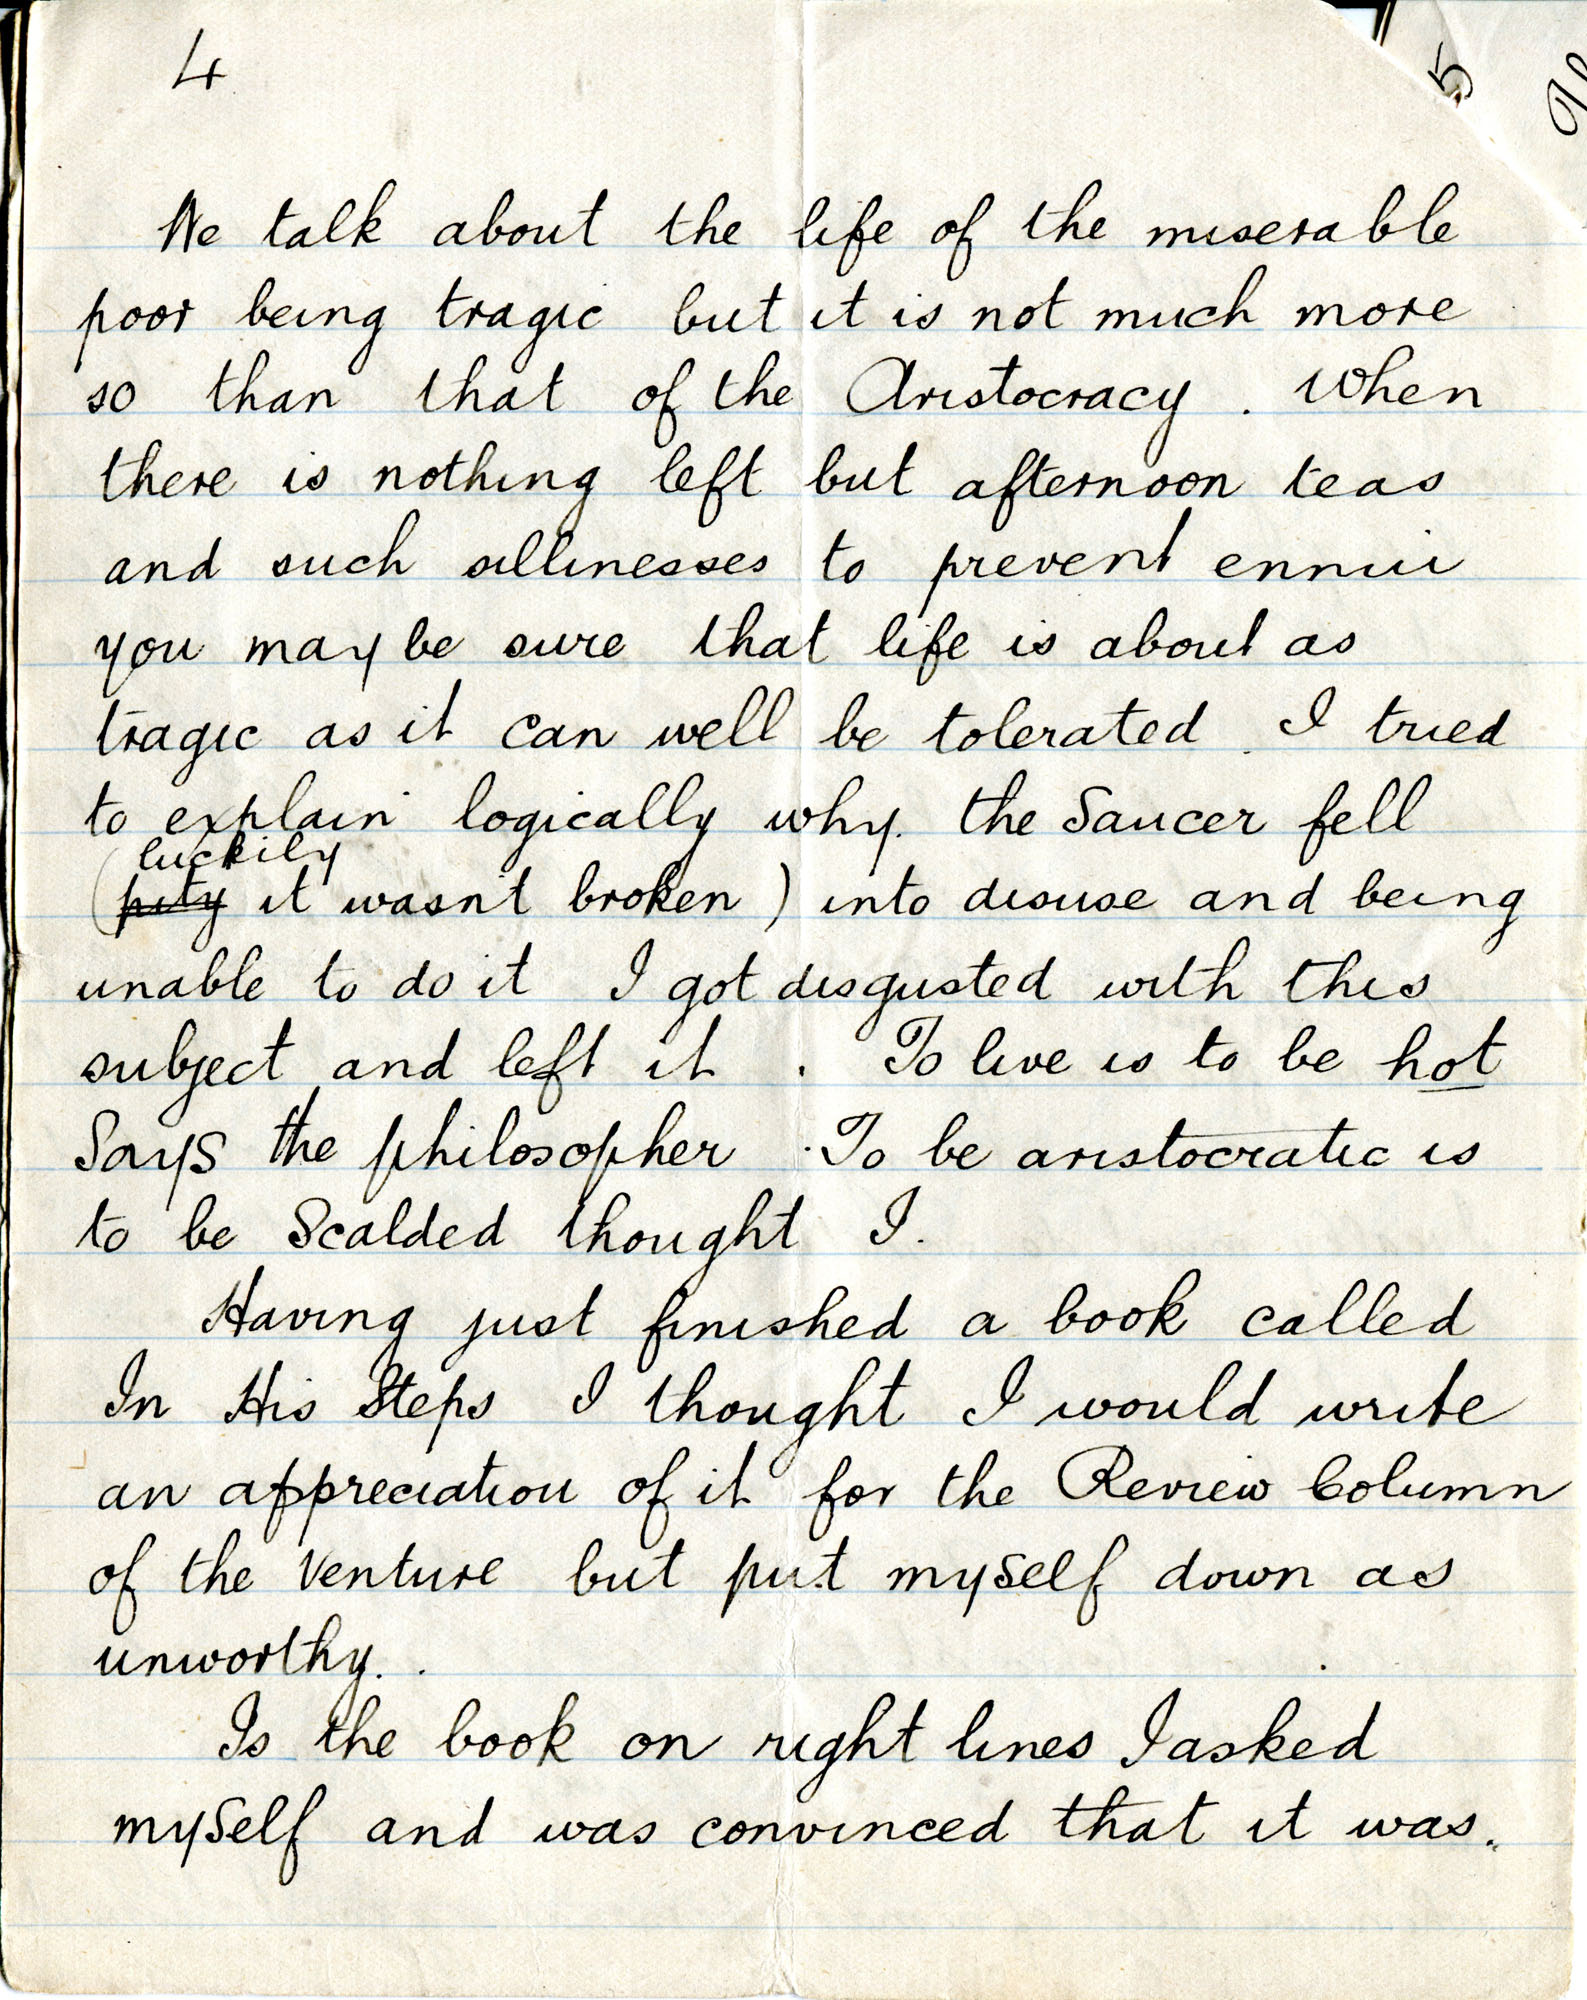 4
5
We talk about the life of the miserable
poor being tragic but it is not much more
so than that of the Aristocracy. When
there is nothing left but afternoon teas
and such sillinesses to prevent ennui
you may be sure that life is about as
tragic as it can well be tolerated. I tried
to explain logically why the Saucer fell
luckily
(pity it wasn't broken) into disuse and being
unable to do it I got disgusted with this
subject and left it. To live is to be hot
Says the philosopher. To be aristocratic is
to be Scalded thought I.
Having just finished a book called
In His Steps I thought I would write
an appreciation of it for the Review Column
of the Venture but put myself down as
unworthy..
Is the book on right lines I asked
myself and was convinced that it was.